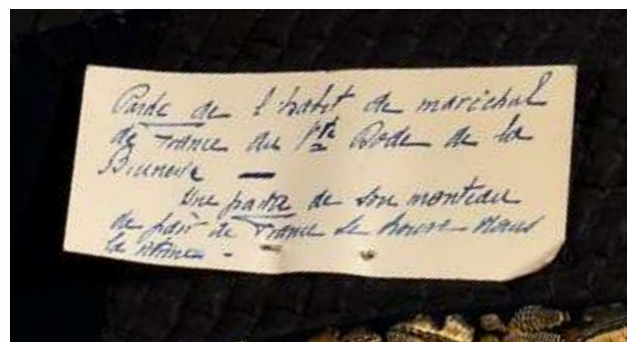 Partie de l'habit de maréchal
de France du Vte Dode de la
Brunerie —
Une partie de son manteau
de pair de France se trouve
la même.